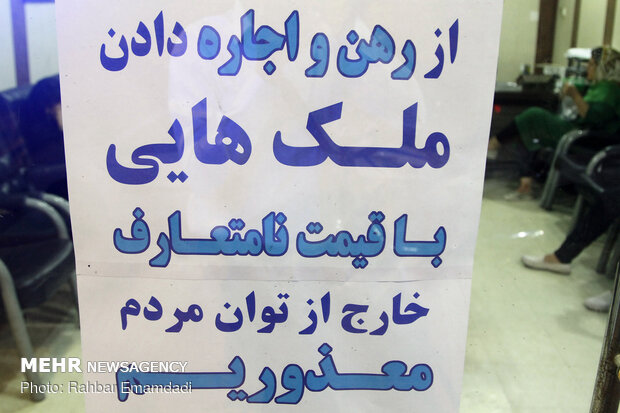 از رهن و اجاره دادن
ملک هایی
با قیمت نامتعارف
خارج از توان مردم
معذوریم
MEHR NEWSAGENCY
Photo: Rahbar Emamdadi